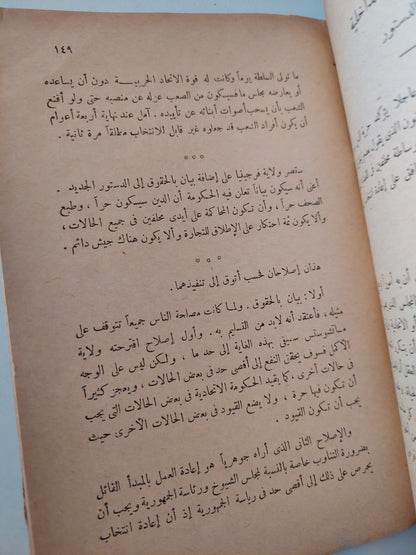 ١٤٩
ما تولى السلطة يوماً وكانت له قوة الاتحاد الحربية دون أن يساعده
أو يعارضه مجلس ما فسيكون من الصعب عزله عن منصبه حتى ولو أقنع
الشعب بأن يسحب أصوات أبنائه عن تأييده. آمل عند نهاية أربعة أعوام
أن يكون أفراد الشعب قد جعلوه غير قابل للانتخاب مطلقاً مرة ثانية.
* * *
ستصر ولاية فرجينيا على إضافة بيان بالحقوق إلى الدستور الجديد.
أعنى أنه سيكون بياناً تعلن فيه الحكومة أن الدين سيكون حراً، وطبع
الصحف حراً، وأن تكون المحاكمة على أيدى محلفين فى جميع الحالات،
وألا يكون ثمة احتكار على الإطلاق للتجارة وألا يكون هناك جيش دائم.
* * *
هذان إصلاحان فحسب أتوق إلى تنفيذهما.
أولا: بيان بالحقوق. ولما كانت مصلحة الناس جميعاً تتوقف على
مثيله، فأعتقد أنه لابد من التسليم به. وأول إصلاح اقترحته ولاية
مساشوستس سيفى بهذه الغاية إلى حد ما، ولكن ليس على الوجه
الأكمل فسوف يحقق النفع إلى أقصى حد فى بعض الحالات، ويعجز كثيراً
فى حالات أخرى، كما يقيد الحكومة الاتحادية فى بعض الحالات التى يجب
أن تكون فيها حرة، ولا يضع القيود فى بعض الحالات الأخرى حيث
يجب أن تكون القيود.
والإصلاح الثانى الذى أراه جوهرياً هو إعادة العمل بالمبدأ القائل
بضرورة التناوب خاصة بالنسبة لمجلس الشيوخ ورئاسة الجمهورية ويجب أن
يحرص على ذلك إلى أقصى حد فى رياسة الجمهورية إذ أن إعادة انتخاب
الدستور